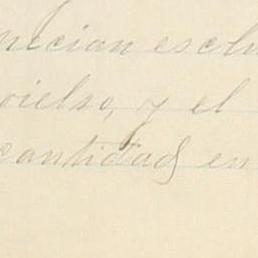 necian esclu
oielso, y el
cantidad en